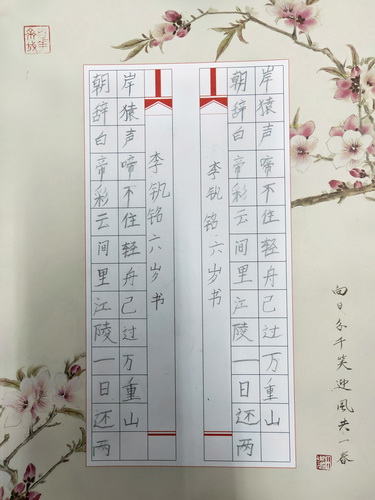 朝辞白帝彩云间里江陵一日还两
岸猿声啼不住轻舟已过万重山
李钒铭六岁书
李钒铭六岁书
朝辞白帝彩云间里江陵一日还两
岸猿声啼不住轻舟已过万重山
向日分千笑迎風共一春